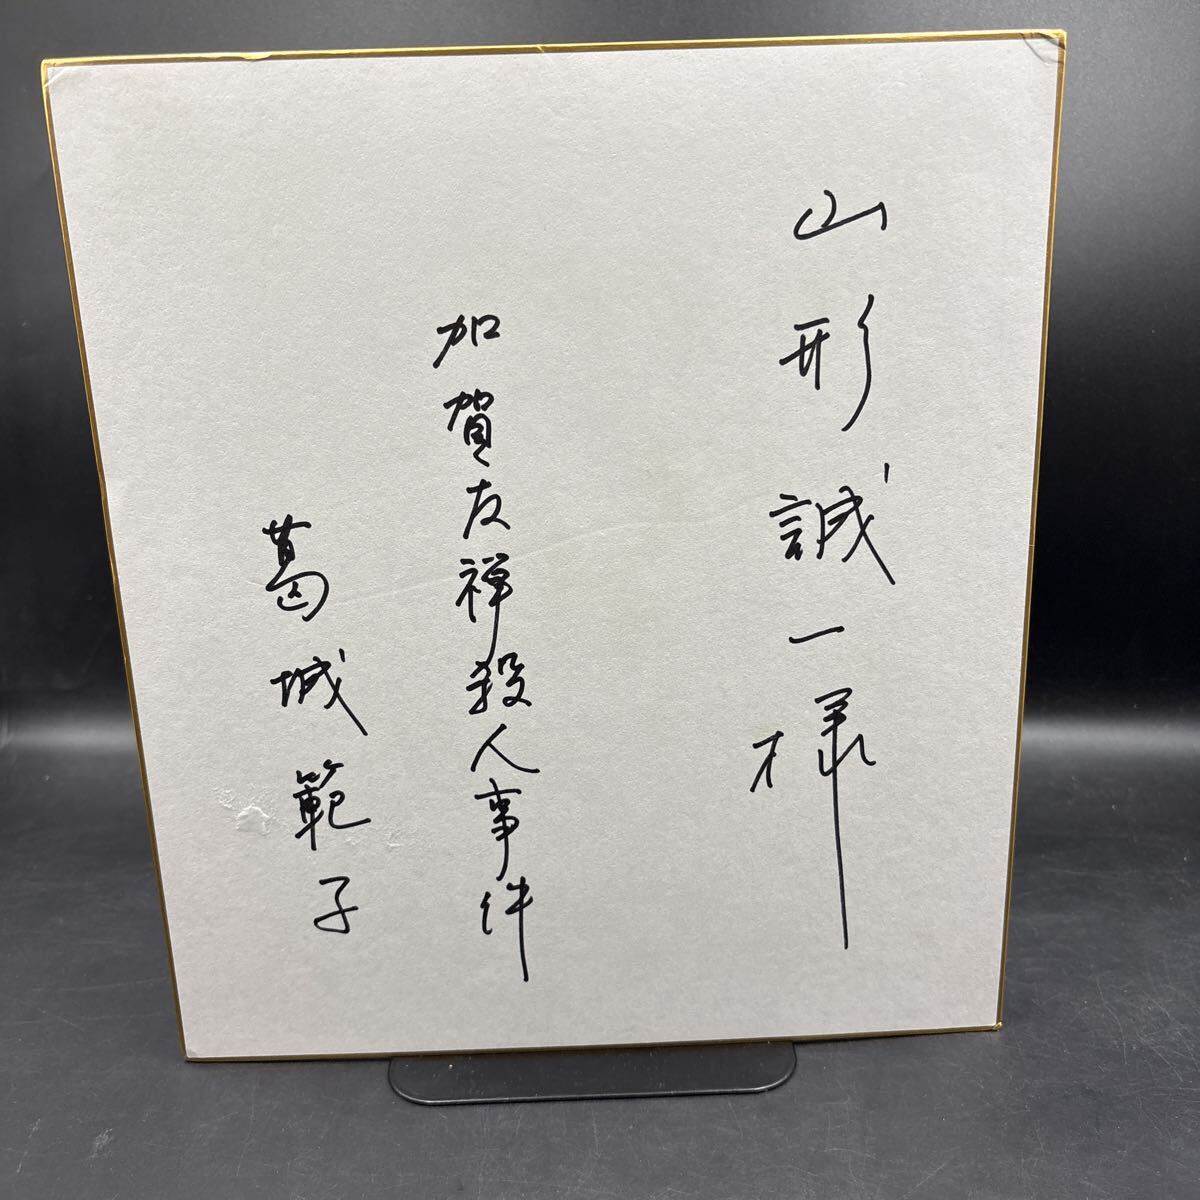 山形誠一様
加賀友禅殺人事件
葛城範子